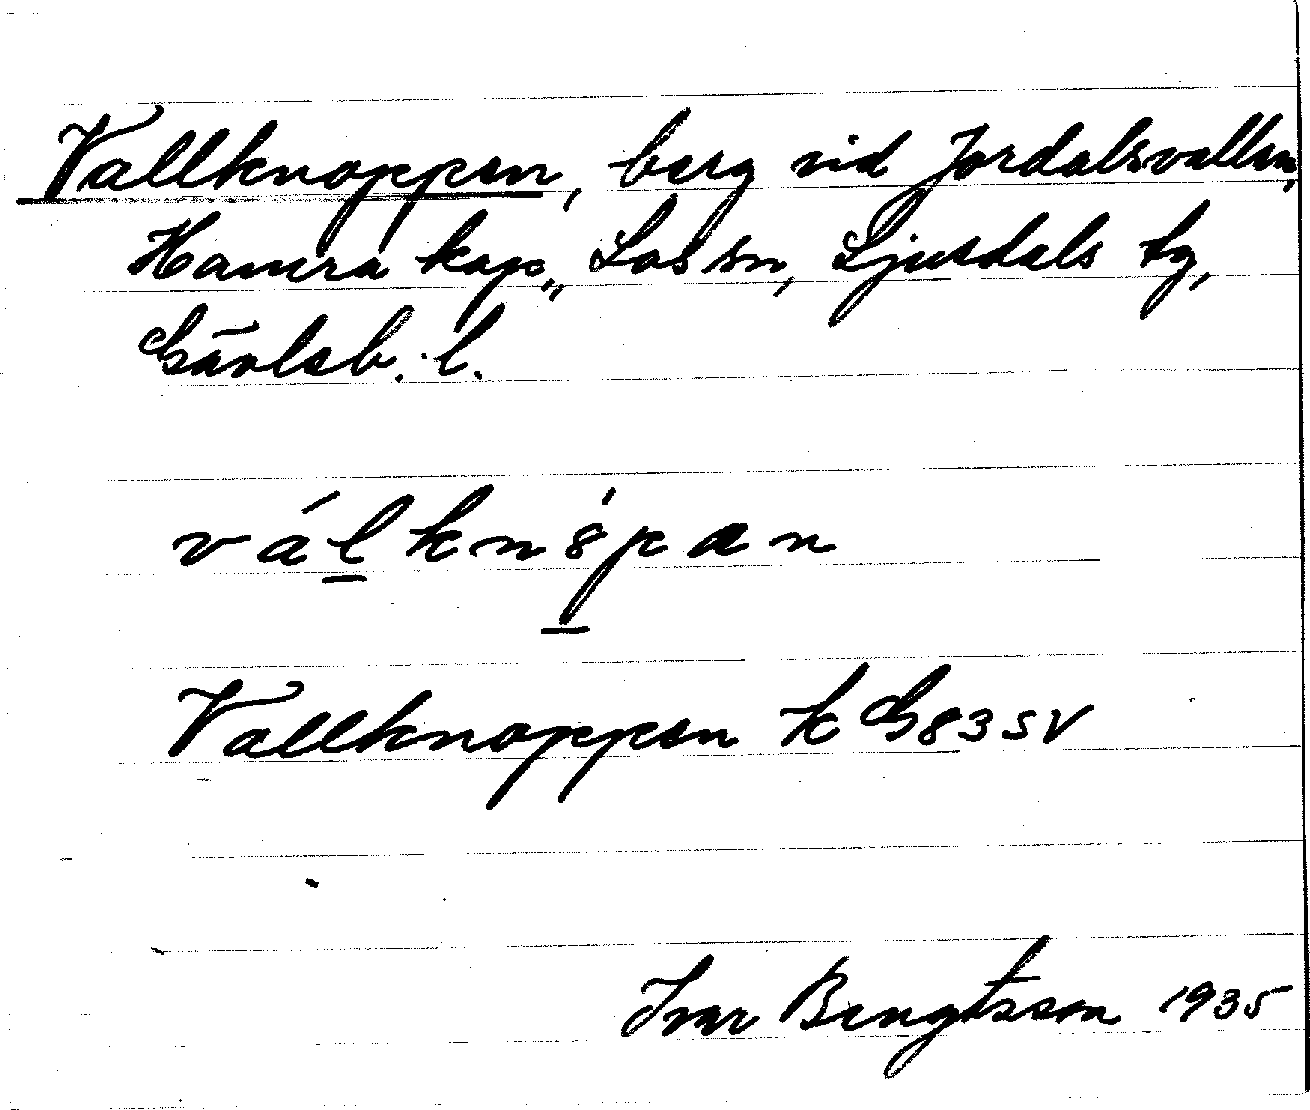 Vallknoppen, berg vid Jordalsvallen,
Hamra kap., Los sn, Ljusdals tg,
Gävleb. l.
válknȣ́pan
Vallknoppen k G83SV
Ivar Bengtsson 1935